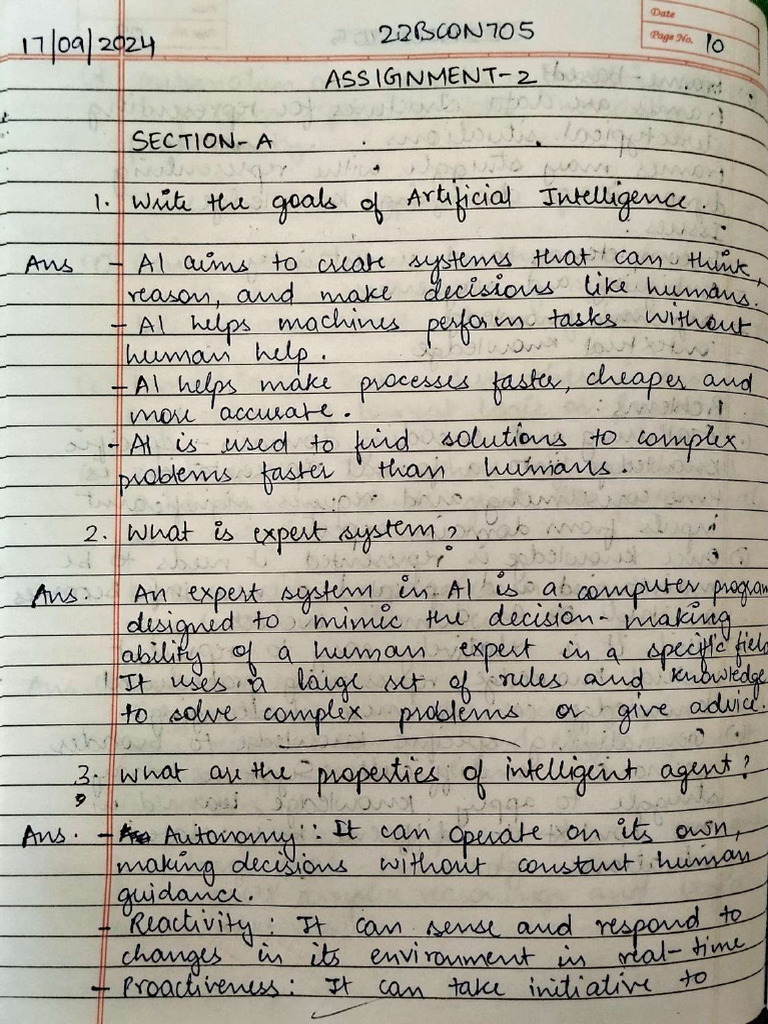 Date
17/09/2024 22BCON705 Page No. 10
ASSIGNMENT-2
SECTION-A
1. Write the goals of Artificial Intelligence.
Ans - AI aims to create systems that can think,
reason, and make decisions like humans.
- AI helps machines perform tasks without
human help.
- AI helps make processes faster, cheaper and
more accurate.
- AI is used to find solutions to complex
problems faster than humans.
2. What is expert system?
Ans: An expert system in AI is a computer program
designed to mimic the decision-making
ability of a human expert in a specific field
It uses a large set of rules and knowledge
to solve complex problems or give advice.
3. What are the properties of intelligent agent?
Ans. - Autonomy: It can operate on its own,
making decisions without constant human
guidance.
- Reactivity: It can sense and respond to
changes in its environment in real-time
- Proactiveness: It can take initiative to